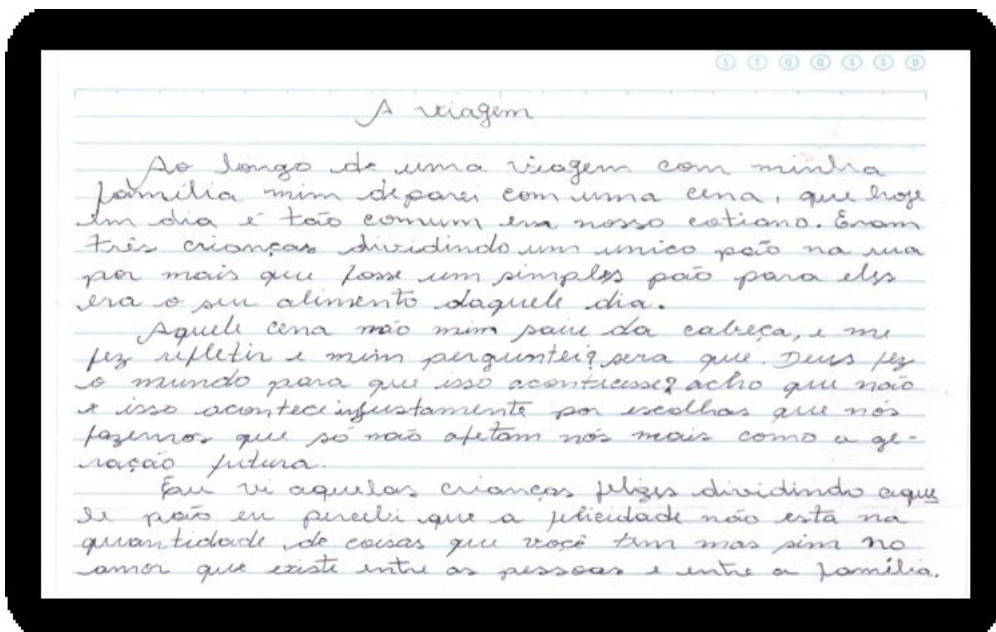 S T Q Q S S D
A viagem
Ao longo de uma viagem com minha
família mim deparei com uma cena, que hoje
em dia é tão comum em nosso cotiano. Eram
três crianças dividindo um unico pão na rua
por mais que fosse um simples pão para eles
era o seu alimento daquele dia.
Aquele cena não mim saiu da cabeça, e me
fez refletir e mim perguntei? sera que. Deus fez
o mundo para que isso acontecesse? acho que não
e isso acontece injustamente por escolhas que nós
fazemos que só não afetam nós mais como a ge-
ração futura.
Eau vi aquelas crianças felizes dividindo aque
le pão eu percebi que a felicidade não está na
quantidade de coisas que você tem mas sim no
amor que existe entre as pessoas e entre a família.